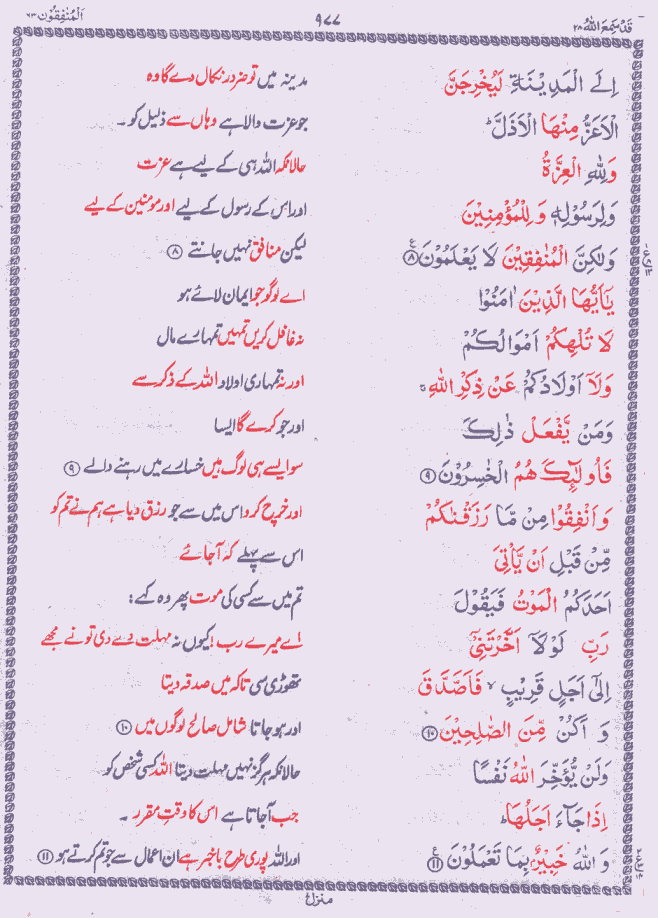 قَدْ سَمِعَ اللّٰهُ ٢٨
٩٧٧
اَلْمُنٰفِقُوْن ٦٣
اِلَى الْمَدِيْنَةِ لَيُخْرِجَنَّ
مدینہ میں تو ضرور نکال دے گا وہ
الْاَعَزُّ مِنْهَا الْاَذَلَّ ؕ
جو عزت والا ہے وہاں سے ذلیل کو ۔
وَلِلّٰهِ الْعِزَّةُ
حالانکہ اللہ ہی کے لیے ہے عزت
وَلِرَسُوْلِهٖ وَلِلْمُؤْمِنِيْنَ
اور اس کے رسول کے لیے اور مومنین کے لیے
وَلٰكِنَّ الْمُنٰفِقِيْنَ لَا يَعْلَمُوْنَ ﴿٨﴾ ع
لیکن منافق نہیں جانتے ﴿٨﴾
يٰۤاَيُّهَا الَّذِيْنَ اٰمَنُوْا
اے لوگو جو ایمان لائے ہو
لَا تُلْهِكُمْ اَمْوَالُكُمْ
نہ غافل کریں تمہیں تمہارے مال
وَلَاۤ اَوْلَادُكُمْ عَنْ ذِكْرِ اللّٰهِ ۚ
اور نہ تمہاری اولاد اللہ کے ذکر سے
وَمَنْ يَّفْعَلْ ذٰلِكَ
اور جو کرے گا ایسا
فَاُولٰٓئِكَ هُمُ الْخٰسِرُوْنَ ﴿٩﴾
سو ایسے ہی لوگ ہیں خسارے میں رہنے والے ﴿٩﴾
وَاَنْفِقُوْا مِنْ مَّا رَزَقْنٰكُمْ
اور خرچ کرو اس میں سے جو رزق دیا ہے ہم نے تم کو
مِّنْ قَبْلِ اَنْ يَّاْتِيَ
اس سے پہلے کہ آ جائے
اَحَدَكُمُ الْمَوْتُ فَيَقُوْلَ
تم میں سے کسی کی موت پھر وہ کہے :
رَبِّ لَوْلَاۤ اَخَّرْتَنِيْۤ
اے میرے رب ! کیوں نہ مہلت دے دی تو نے مجھے
اِلٰۤى اَجَلٍ قَرِيْبٍ ۙ فَاَصَّدَّقَ
تھوڑی سی تاکہ میں صدقہ دیتا
وَ اَكُنْ مِّنَ الصّٰلِحِيْنَ ﴿١٠﴾
اور ہو جاتا شامل صالح لوگوں میں ﴿١٠﴾
وَلَنْ يُّؤَخِّرَ اللّٰهُ نَفْسًا
حالانکہ ہرگز نہیں مہلت دیتا اللہ کسی شخص کو
اِذَا جَآءَ اَجَلُهَا ؕ
جب آ جاتا ہے اس کا وقتِ مقرر ۔
وَ اللّٰهُ خَبِيْرٌۢ بِمَا تَعْمَلُوْنَ ﴿١١﴾ ع
اور اللہ پوری طرح باخبر ہے ان اعمال سے جو تم کرتے ہو ﴿١١﴾
منزل